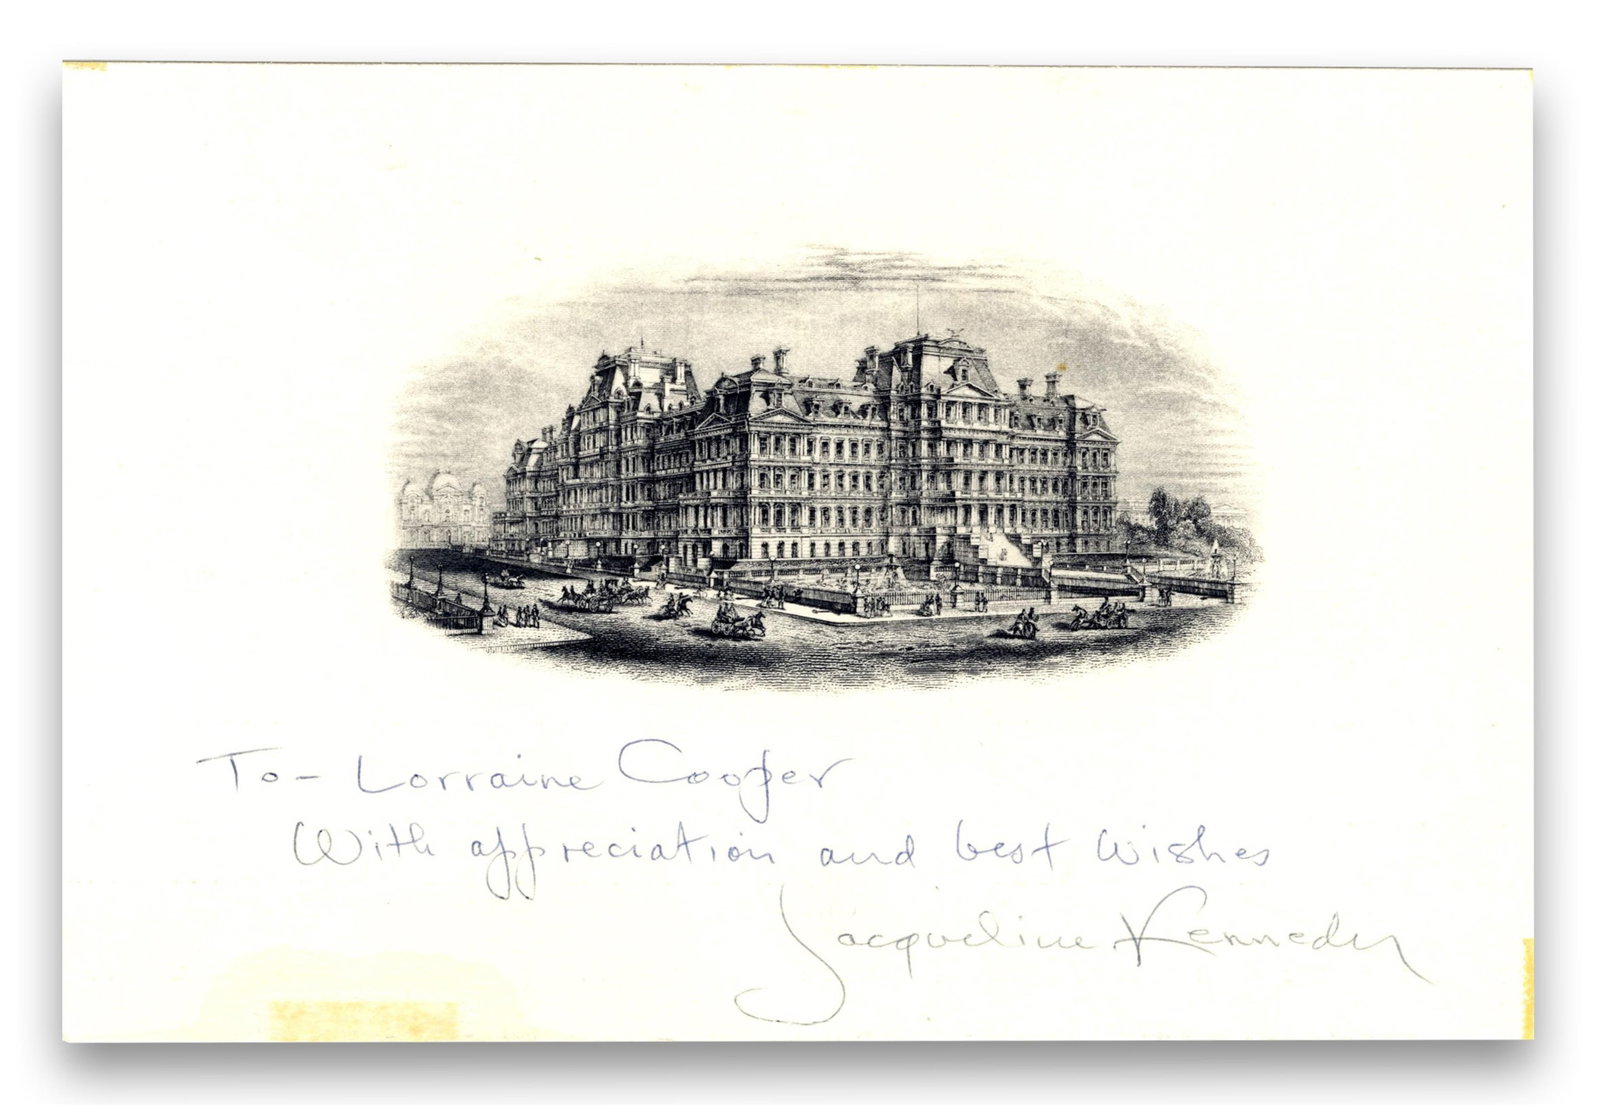 To - Lorraine Cooper
With appreciation and best wishes
Jacqueline Kennedy